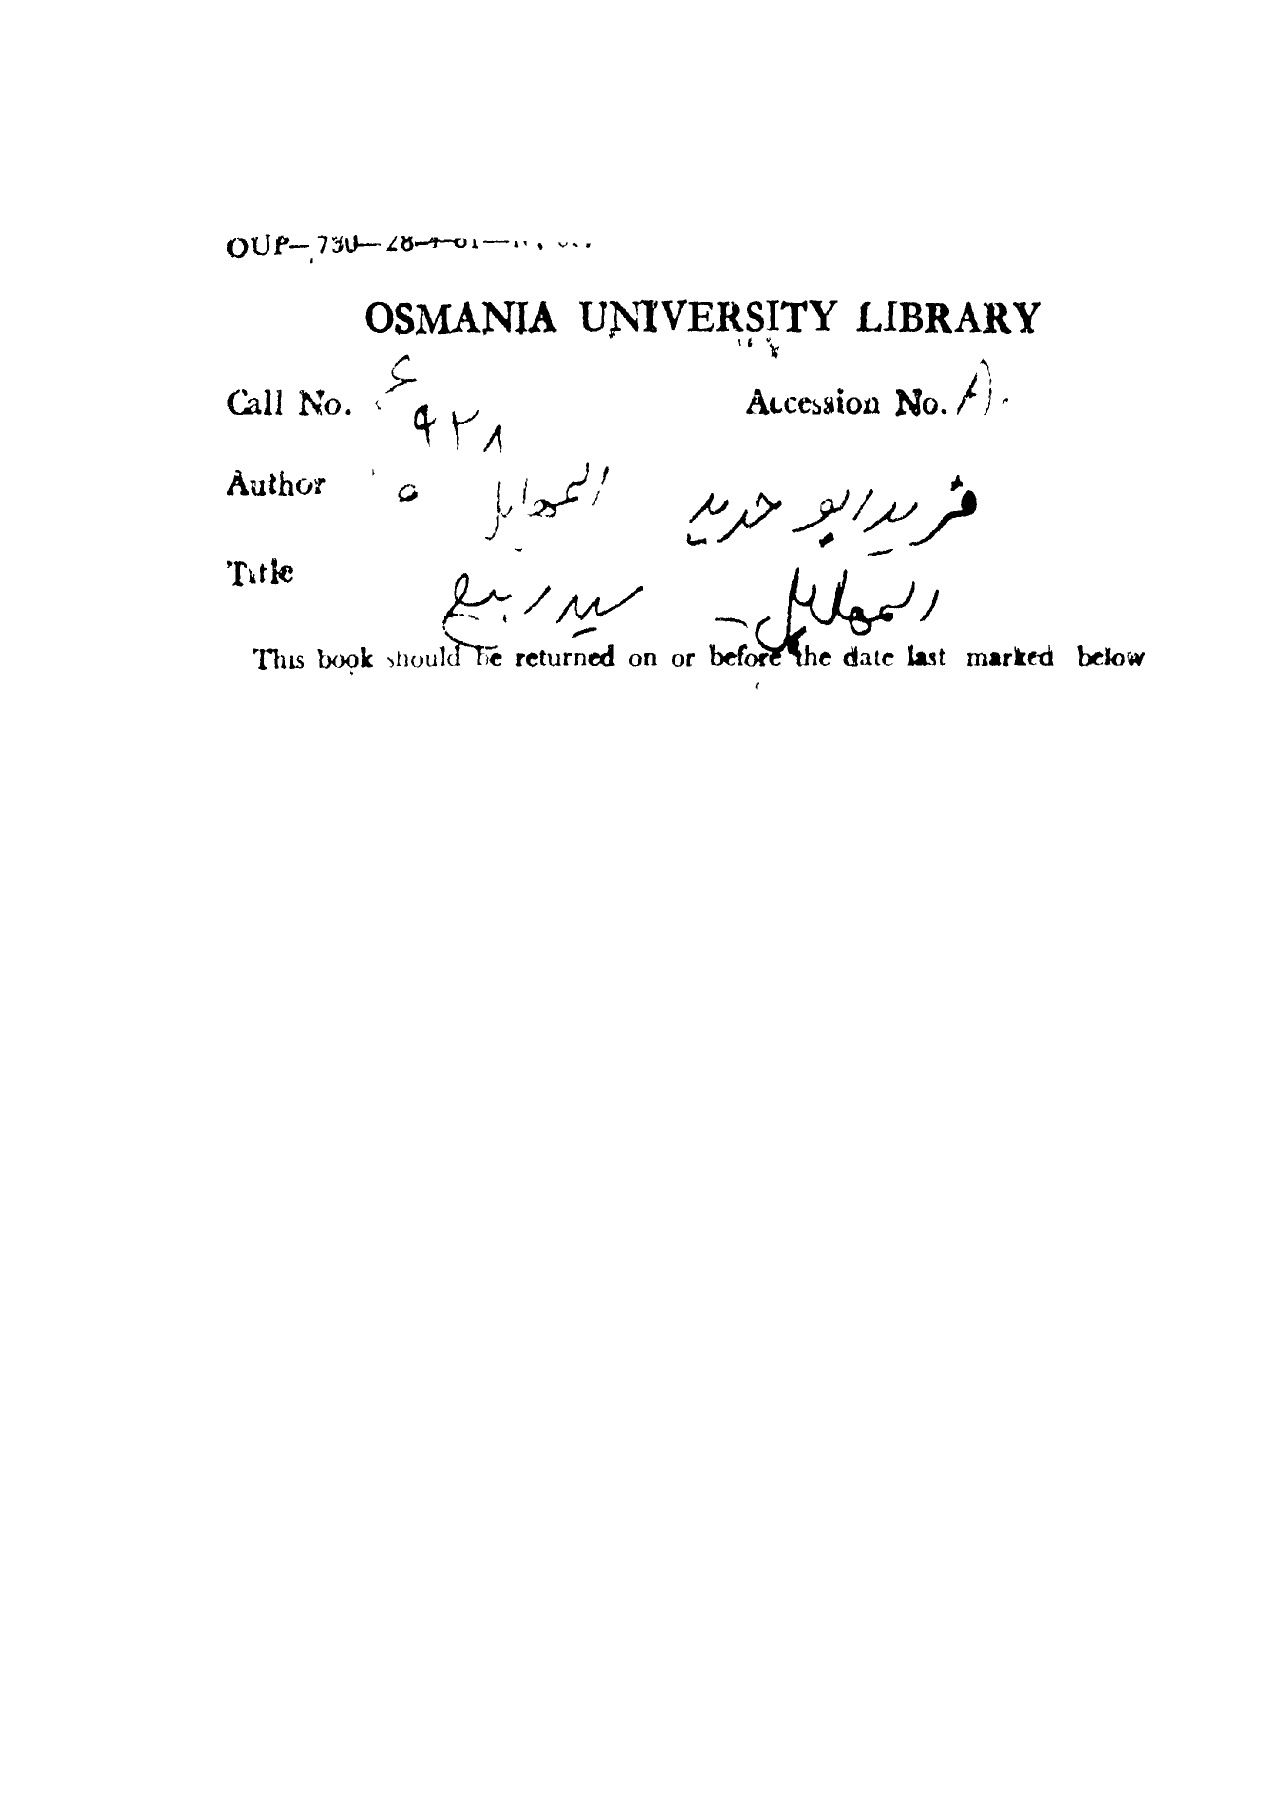 OUP—730—28
OSMANIA UNIVERSITY LIBRARY
Call No. ع ٩٢٨ Accession No.
Author فريد ابو حديد المهلهل
Title المهلهل - سيد ربيع
This book should be returned on or before the date last marked below